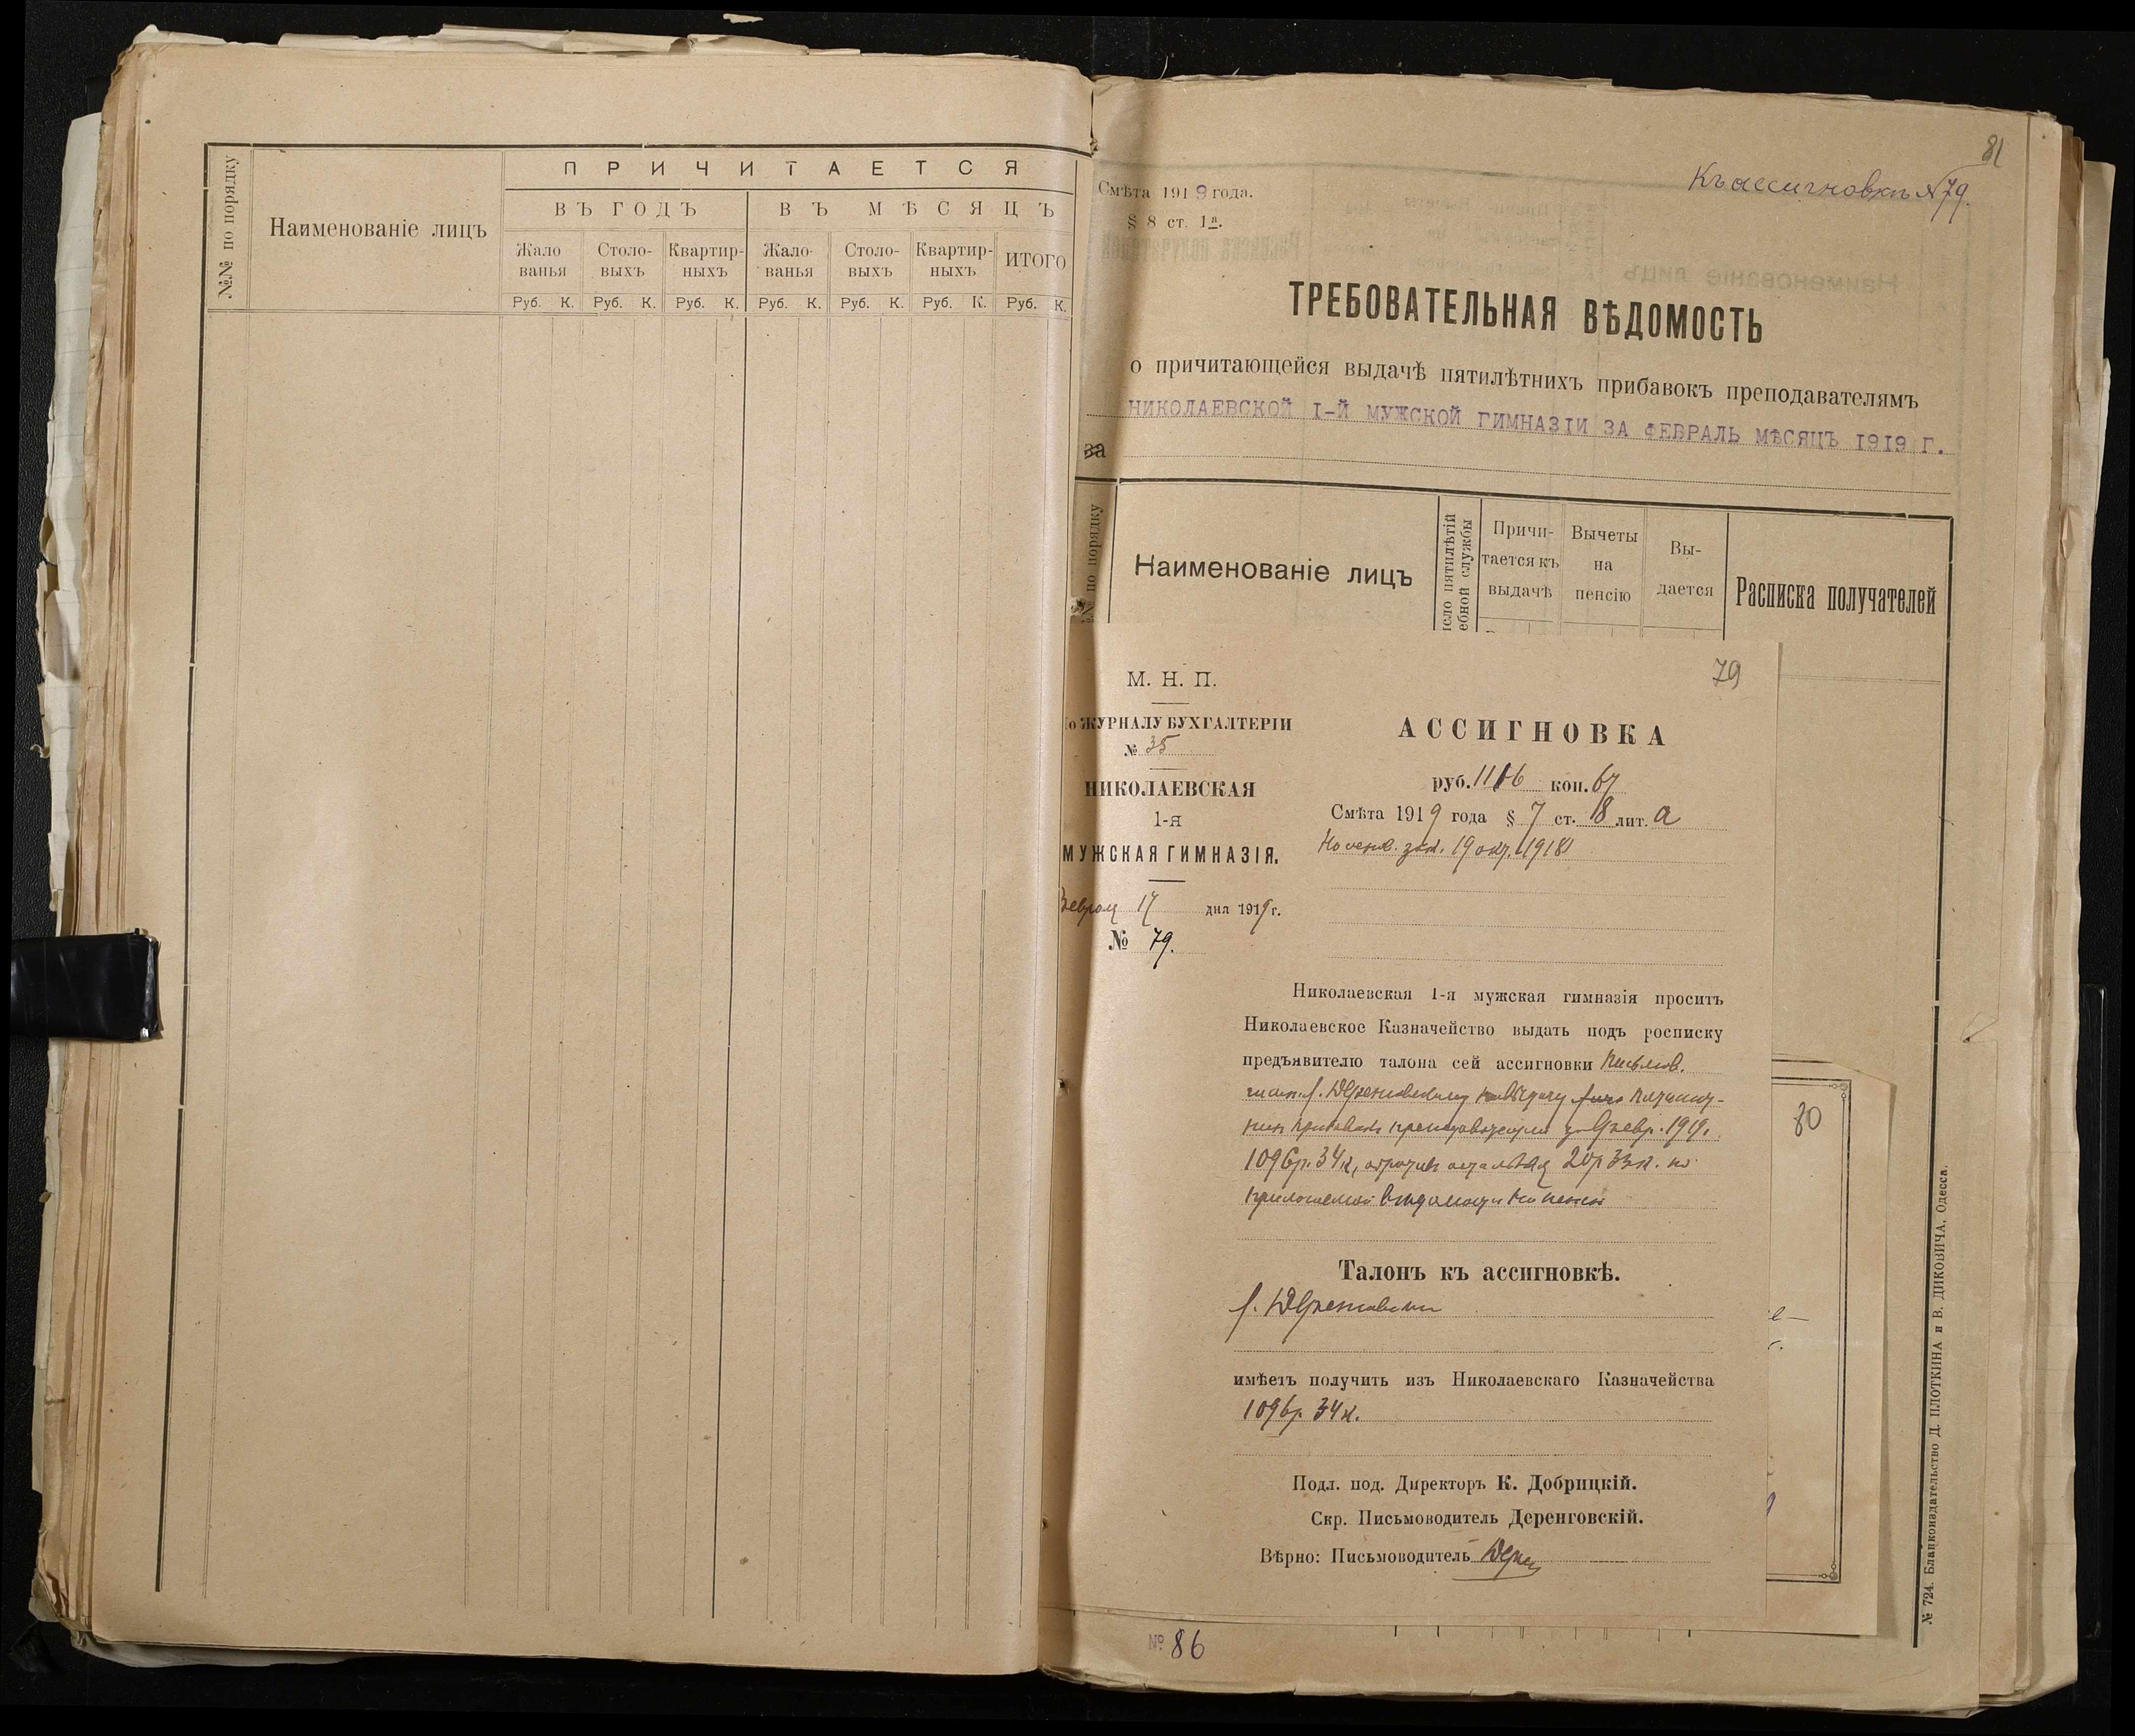 №№ по порядку
Наименованіе лицъ
ПРИЧИТАЕТСЯ
ВЪ ГОДЪ
ВЪ МѢСЯЦЪ
Жало
ванья
Столо-
выхъ
Квартир-
ныхъ
Жало-
ванья
Столо-
выхъ
Квартир-
ныхъ
ИТОГО
Руб. К. Руб. К. Руб. К. Руб. К. Руб. К. Руб. К. Руб. К.
81
Къ ассигновкѣ №79.
Смѣта 1919 года.
§ 8 ст. 1а.
ТРЕБОВАТЕЛЬНАЯ ВѢДОМОСТЬ
о причитающейся выдачѣ пятилѣтнихъ прибавокъ преподавателямъ
НИКОЛАЕВСКОЙ I-Й МУЖСКОЙ ГИМНАЗІИ ЗА ФЕВРАЛЬ МѢСЯЦЪ 1919 Г.
за
№ по порядку
Наименованіе лицъ
исло пятилѣтій
ебной службы
Причи-
тается къ
выдачѣ
Вычеты
на
пенсію
Вы-
дается
Расписка получателей
79
М. Н. П.
по ЖУРНАЛУ БУХГАЛТЕРІИ
№ 35
НИКОЛАЕВСКАЯ
1-я
МУЖСКАЯ ГИМНАЗІЯ.
17 дня 1919 г.
№ 79.
АССИГНОВКА
руб. 1116 коп. 67
Смѣта 1919 года § 7 ст. 18 лит. а
зак. 19 окт. 1918
Николаевская 1-я мужская гимназія проситъ
Николаевское Казначейство выдать подъ росписку
предъявителю талона сей ассигновки Письмов.
гимн. Деренговскому на выдачу
прибавокъ преподавателямъ за февр. 1919 г.
1096 р. 34 к, 20 р 33 к. по
прилагаемой вѣдомости
Талонъ къ ассигновкѣ.
Деренговскій
имѣетъ получить изъ Николаевскаго Казначейства
1096 р. 34 к.
Подл. под. Директоръ К. Добрицкій.
Скр. Письмоводитель Деренговскій.
Вѣрно: Письмоводитель
80
№ 724. Бланкоиздательство Д. ПЛОТКИНА и В. ДИКОВИЧА, Одесса.
№ 86